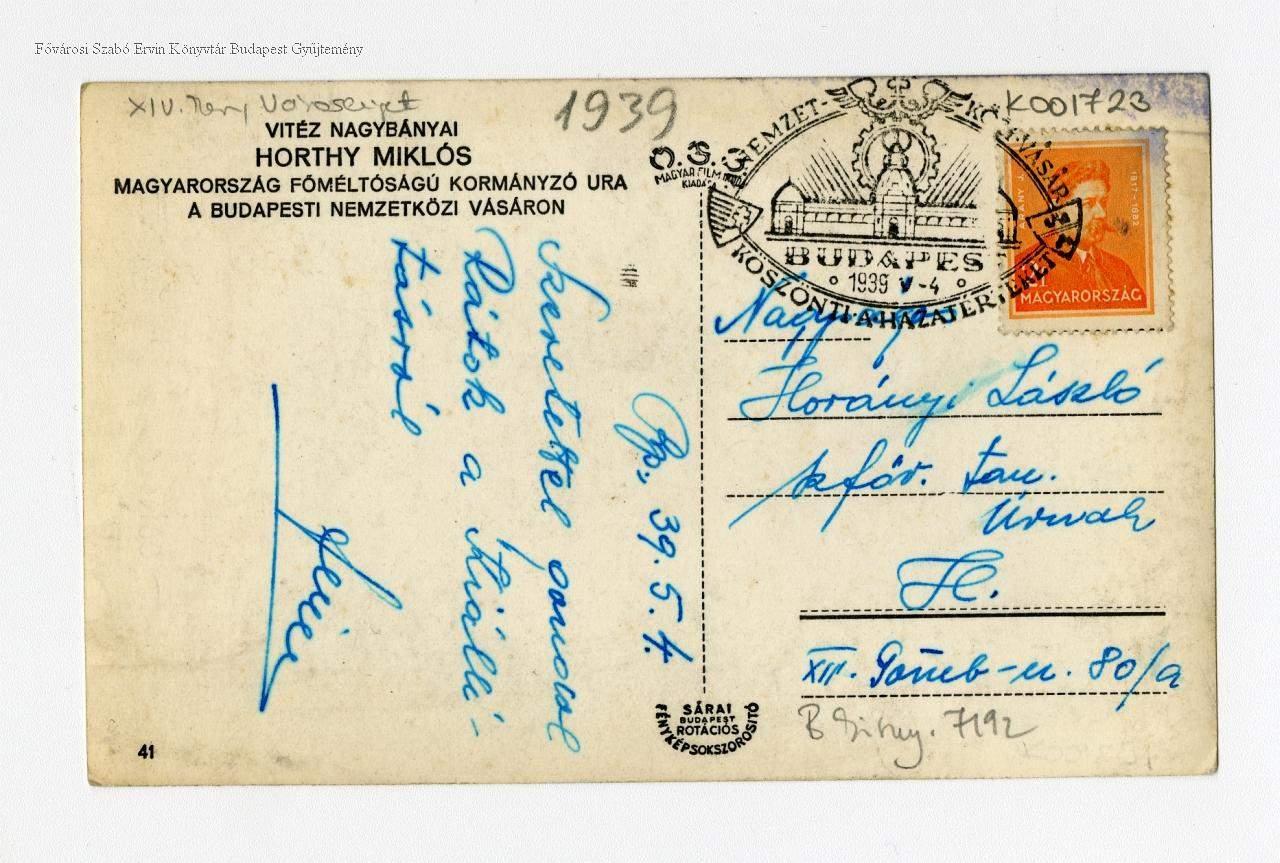 Fővárosi Szabó Ervin Könyvtár Budapest Gyűjtemény
XIV.
1939
K001723
VITÉZ NAGYBÁNYAI
HORTHY MIKLÓS
MAGYARORSZÁG FŐMÉLTÓSÁGÚ KORMÁNYZÓ URA
A BUDAPESTI NEMZETKÖZI VÁSÁRON
MAGYAR FILM
KIADÁSA
NEMZETKÖZI VÁSÁR
BUDAPEST
1939 V -4
KÖSZÖNTI A HAZATÉRTEKET
1817-1882
MAGYARORSZÁG
Bp., 39. 5. 4.
Szeretettel gondol
Rátok a Kiállí-
tásról
Horányi László
szfőv. tan.
Úrnak
H.
XIII. Gömb-u. 80/a
SÁRAI
BUDAPEST
ROTÁCIÓS
FÉNYKÉPSOKSZOROSÍTÓ
7192
41